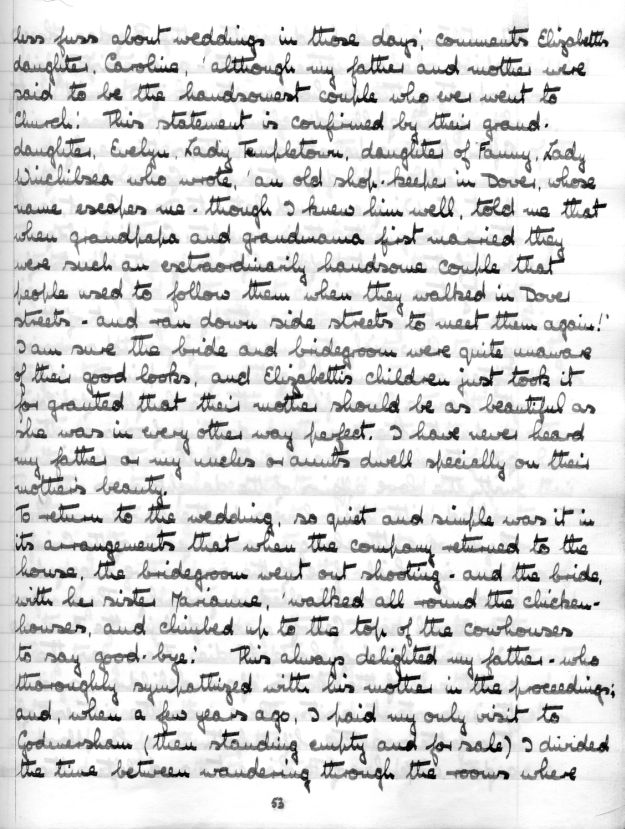 less fuss about weddings in those days', comments Elizabeth's
daughter, Caroline, 'although my father and mother were
said to be the handsomest couple who ever went to
Church.' This statement is confirmed by their grand-
daughter, Evelyn, Lady Templetown, daughter of Fanny, Lady
Winchilsea who wrote, 'an old shop-keeper in Dover, whose
name escapes me - though I knew him well, told me that
when grandpapa and grandmama first married they
were such an extraordinarily handsome couple that
people used to follow them when they walked in Dover
streets - and ran down side streets to meet them again!'
I am sure the bride and bridegroom were quite unaware
of their good looks, and Elizabeth's children just took it
for granted that their mother should be as beautiful as
she was in every other way perfect. I have never heard
my father or my uncles or aunts dwell specially on their
mother's beauty.
To return to the wedding, so quiet and simple was it in
its arrangements that when the company returned to the
house, the bridegroom went out shooting - and the bride,
with her sister Marianne, 'walked all round the chicken-
houses, and climbed up to the top of the cowhouses
to say good-bye.' This always delighted my father - who
thoroughly sympathized with his mother in the proceedings;
and, when a few years ago, I paid my only visit to
Godmersham (then standing empty and for sale) I divided
the time between wandering through the rooms where
53